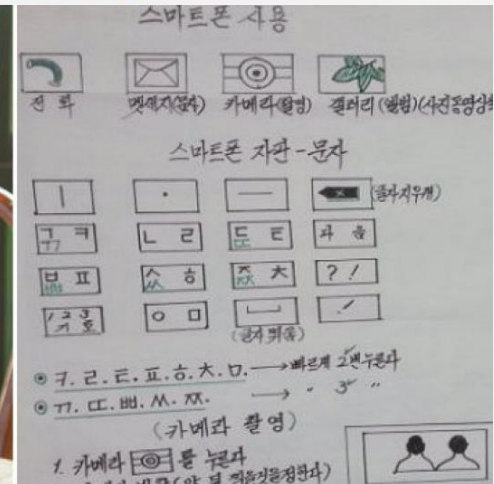 스마트폰 사용
전화 멧세지(문자) 카메라(촬영) 갤러리(앨범)(사진동영상
스마트폰 자판-문자
ㅣ · ㅡ (글자지우개)
ㄱ ㅋ ㄲ ㄴ ㄹ ㄷ ㅌ ㄸ
ㅂ ㅍ ㅃ ㅅ ㅎ ㅆ ㅈ ㅊ ㅉ ? !
1 2 3 기호 ㅇ ㅁ
(글자 띄움)
ㅋ. ㄹ. ㅌ. ㅍ. ㅎ. ㅊ. ㅁ. → 빠르게 2번누른다
ㄲ. ㄸ. ㅃ. ㅆ. ㅉ. → " 3 "
(카메라 촬영)
1. 카메라 를 누른다